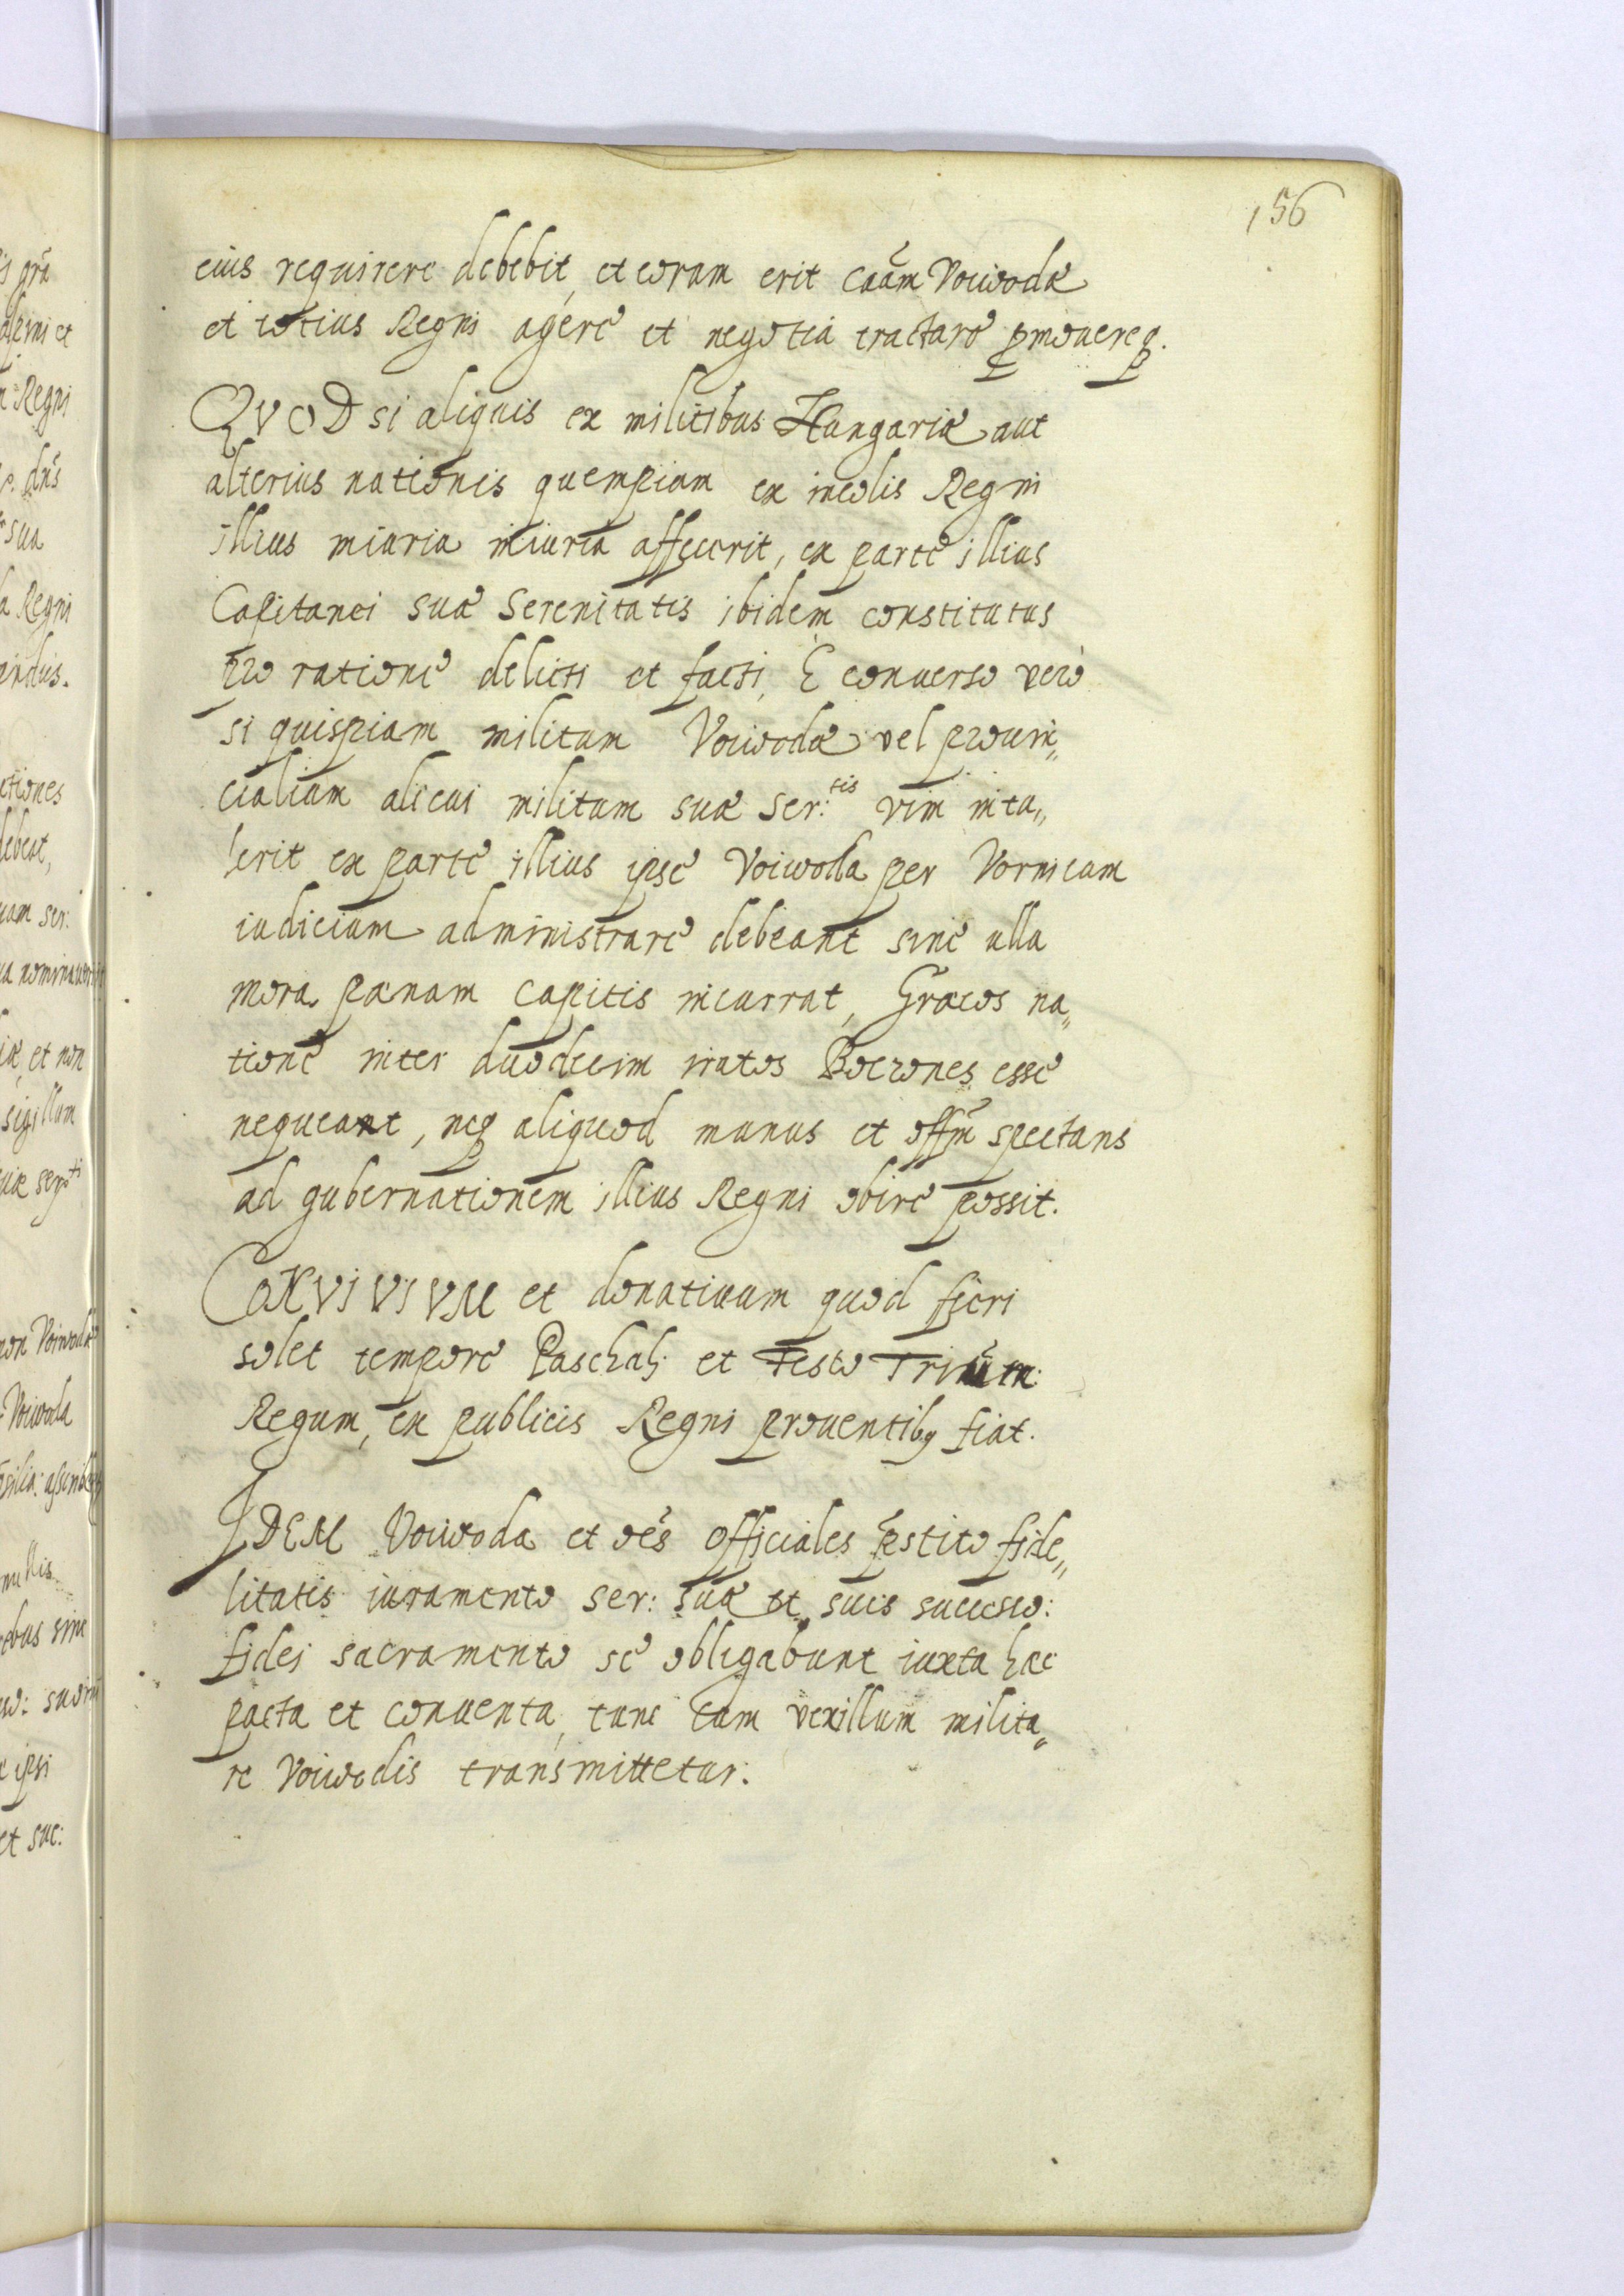 156
eius requirere debebit, et eorum erit caãm Voiwodæ
et totius Regni agere et negotia tractare p̱mouereq̱.
QVOD si aliquis ex militibus Hungariæ aut
alterius nationis quempiam ex incolis Regni
illius iniuria iniuria affecerit, ex parte illius
Capitanei suæ Serenitatis ibidem constitutus
pro ratione delicti et facti, È conuerso verò
si quispiam militum Voiwodæ vel prouin„
cialium alicui militum suæ Ser:tis vim intu„
lerit ex parte illius ipse Voiwoda per Vornicum
iudicium administrare debeant sine ulla
mora pænam capitis incurrat, Græcos na„
tione inter duodecim iratos Boerones esse
nequeant, neq̱ aliquod munus et offm̃ spectans
ad gubernationem illius Regni obire possit.
CONVIVIVM et donatiuum quod fieri
solet tempore Paschali et Festo Trium
Regum, ex publicis Regni prouentibq fiat.
IDEM Voiwoda et oẽs officiales p̃stito fide„
litatis iuramento Ser: suæ et suis succsso:
fidei sacramento se obligabunt iuxta hæc
pacta et conuenta, tunc tum vexillum milita„
re Voiwodis transmittetur.